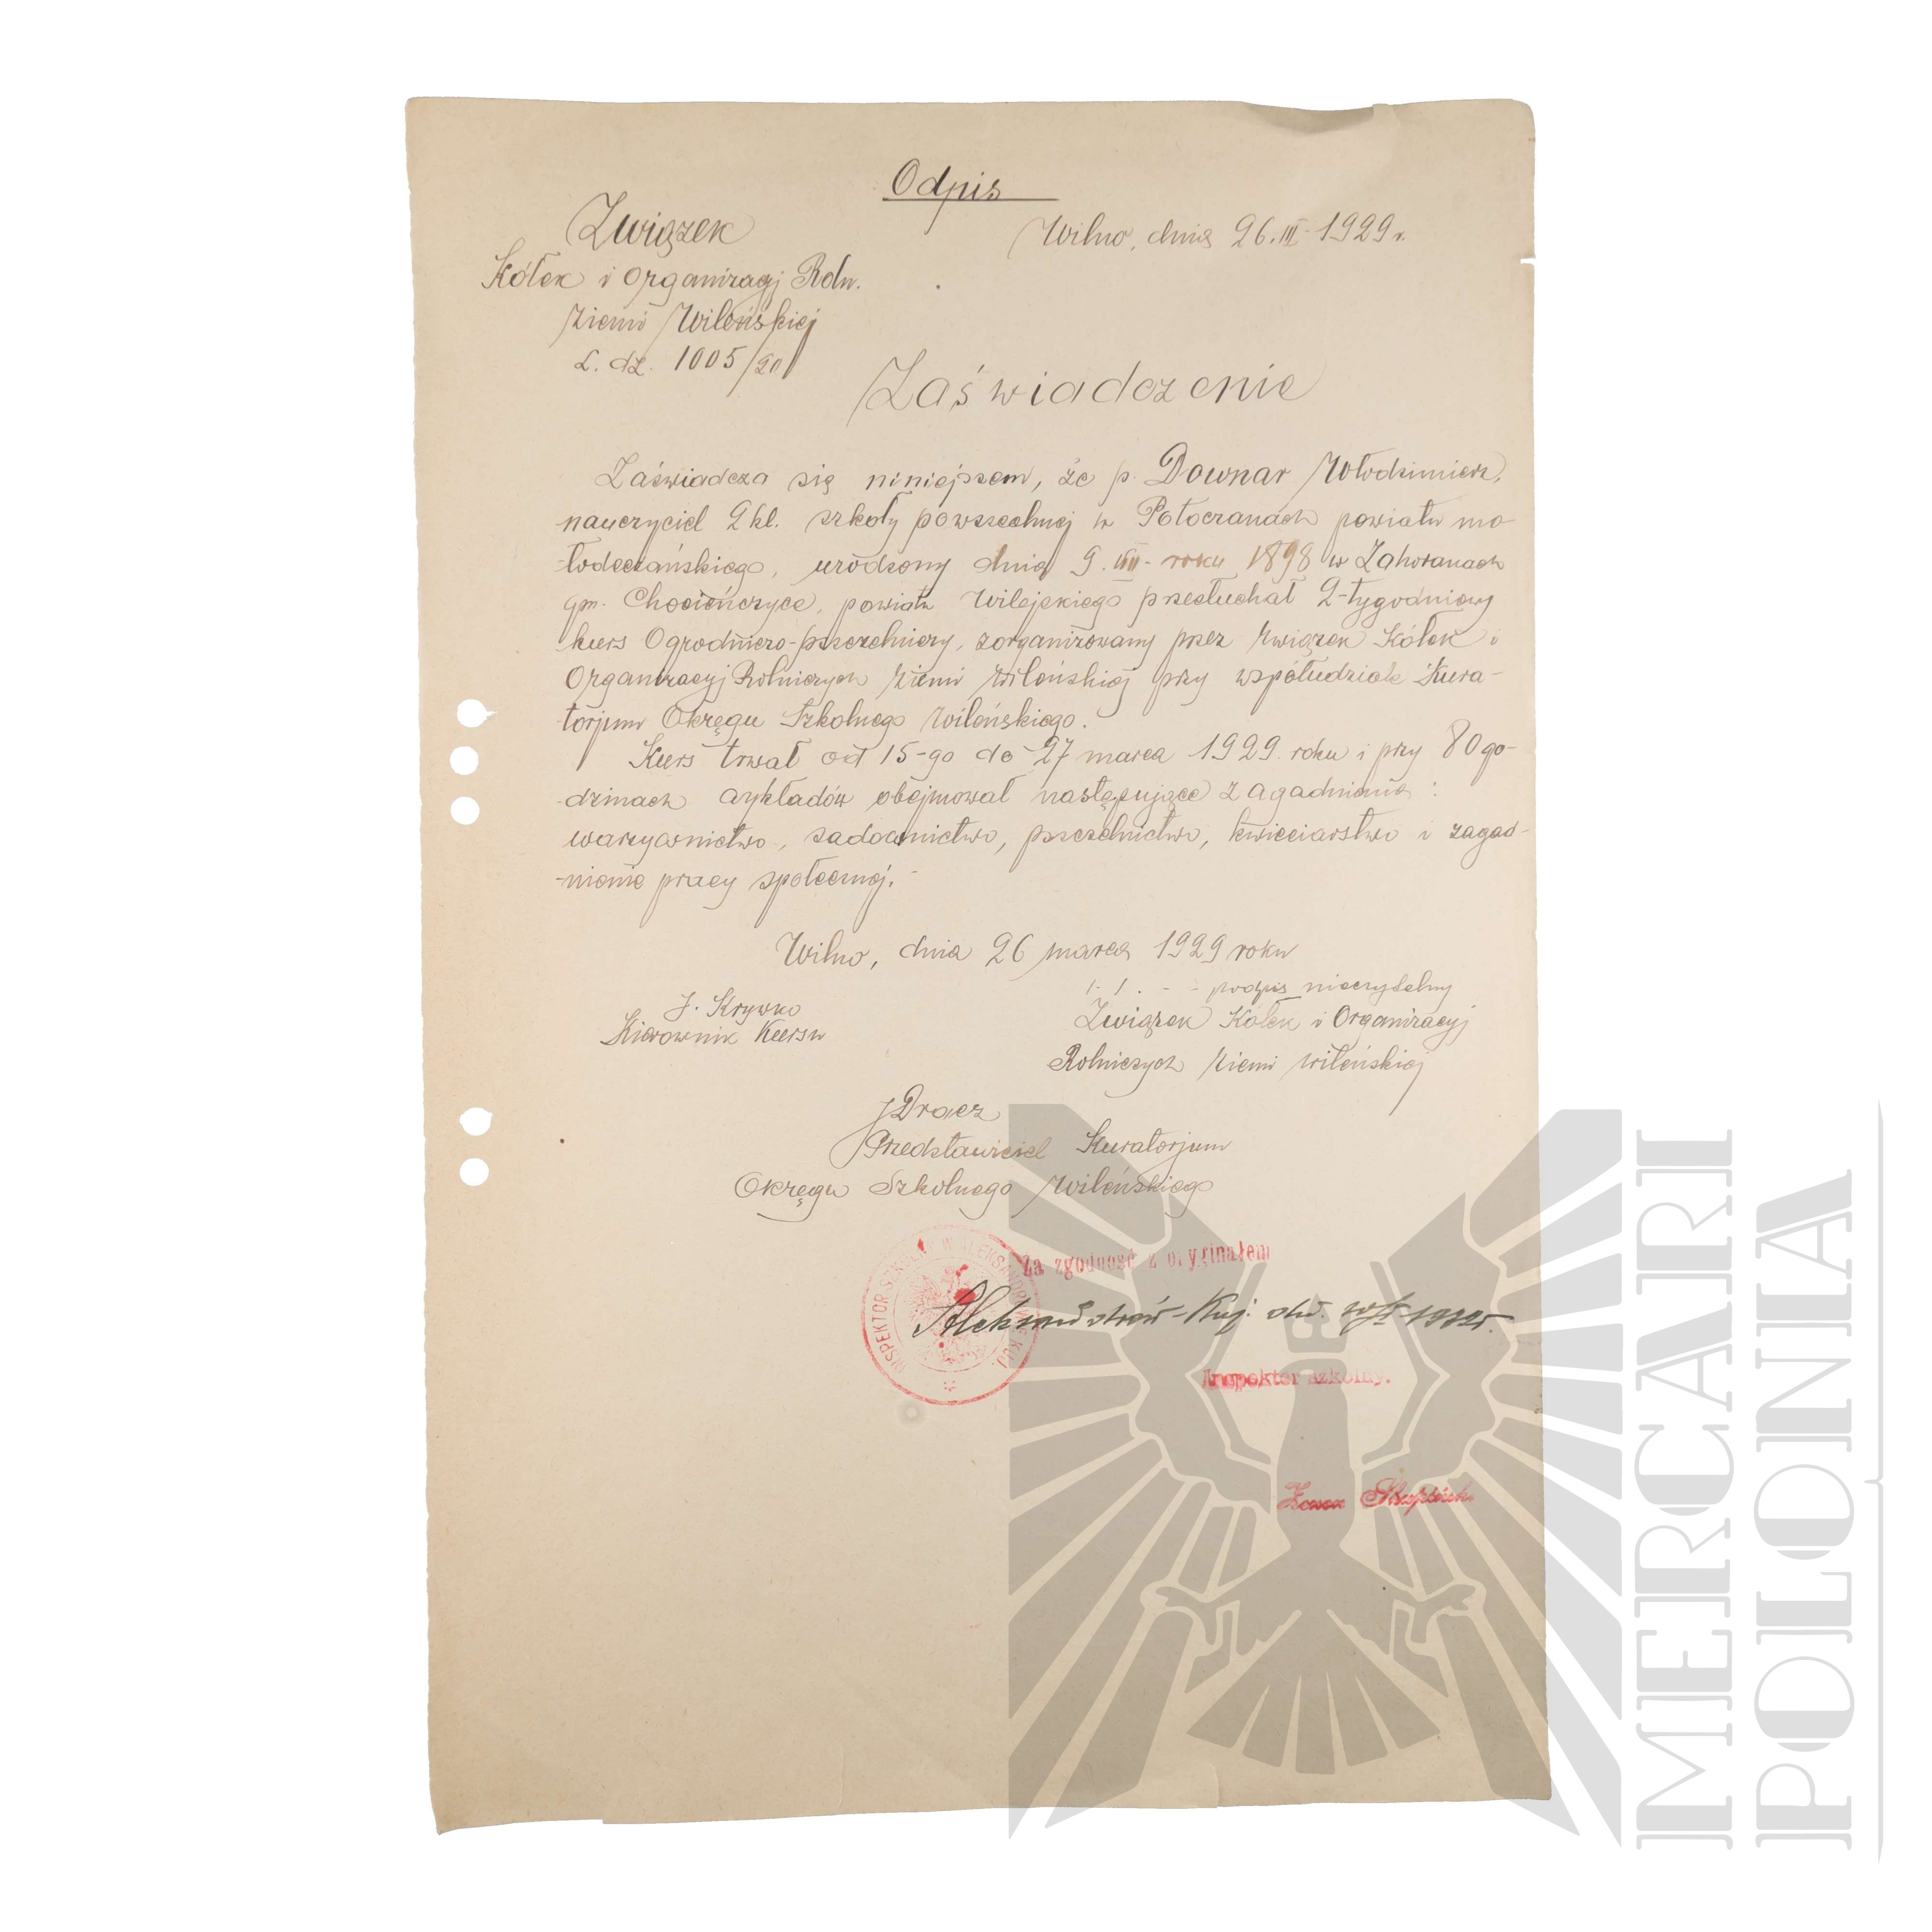 Odpis
Związek
Wilno, dnia 26.III-1929 r.
Kółek i Organizacyj Roln.
Ziemi Wileńskiej
L. dz. 1005/
Zaświadczenie
Zaświadcza się niniejszem, że p. Downar Włodzimierz,
nauczyciel 2 kl. szkoły powszechnej w Potoczanach powiatu mo-
łodeczańskiego, urodzony dnia 9. roku 1898 w Zahoranach
gm. Chocieńczyce, powiatu Wilejskiego przesłuchał 2-tygodniowy
kurs Ogrodniczo-pszczelniczy, zorganizowany przez Związek Kółek i
Organizacyj Rolniczych Ziemi Wileńskiej przy współudziale Kura-
torjum Okręgu Szkolnego Wileńskiego.
Kurs trwał od 15-go do 27 marca 1929 roku i przy 80 go-
dzinach wykładów obejmował następujące zagadnienia:
warzywnictwo, sadownictwo, pszczelnictwo, kwieciarstwo i zagad-
nienie pracy społecznej.-
Wilno, dnia 26 marca 1929 roku
/-/ podpis nieczytelny
J. Krywko
Kierownik Kursu
Związek Kółek i Organizacyj
Rolniczych Ziemi Wileńskiej
J Dracz
Przedstawiciel Kuratorjum
Okręgu Szkolnego Wileńskiego
INSPEKTOR SZKOLNY W ALEKSANDROWIE KUJ.
Za zgodność z oryginałem
Aleksandrów-Kuj. dn.
Inspektor Szkolny.
MERCARI
POLONIA